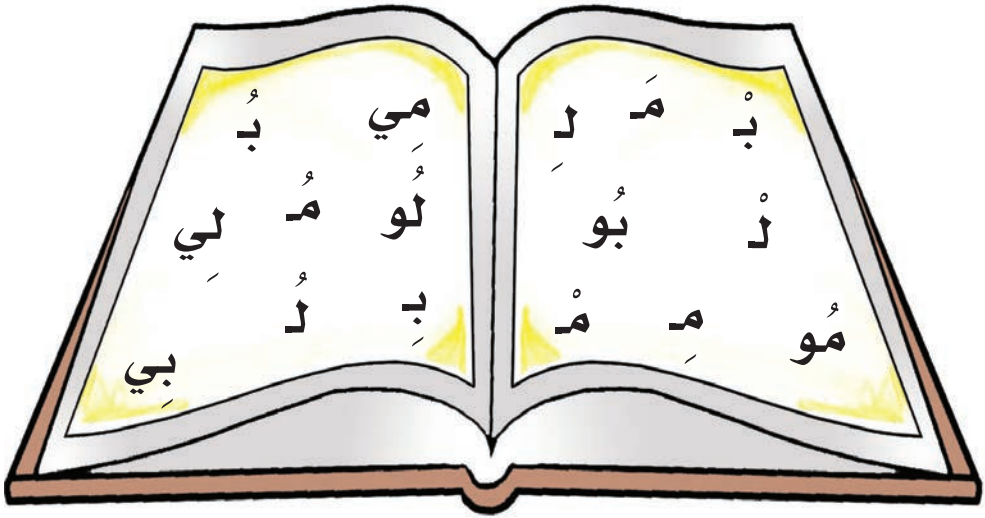 بْـ مَـ لِـ
لْـ بُو
مُو مِـ مْـ
مِي بُـ
لُو مُـ لِي
بِـ لُـ بِي